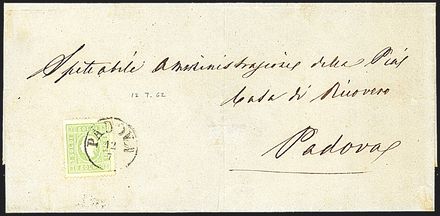 Spettabile Amministrazione della Pia
Casa di Ricovero
12 7. 62
Padova
PADOVA
12
7